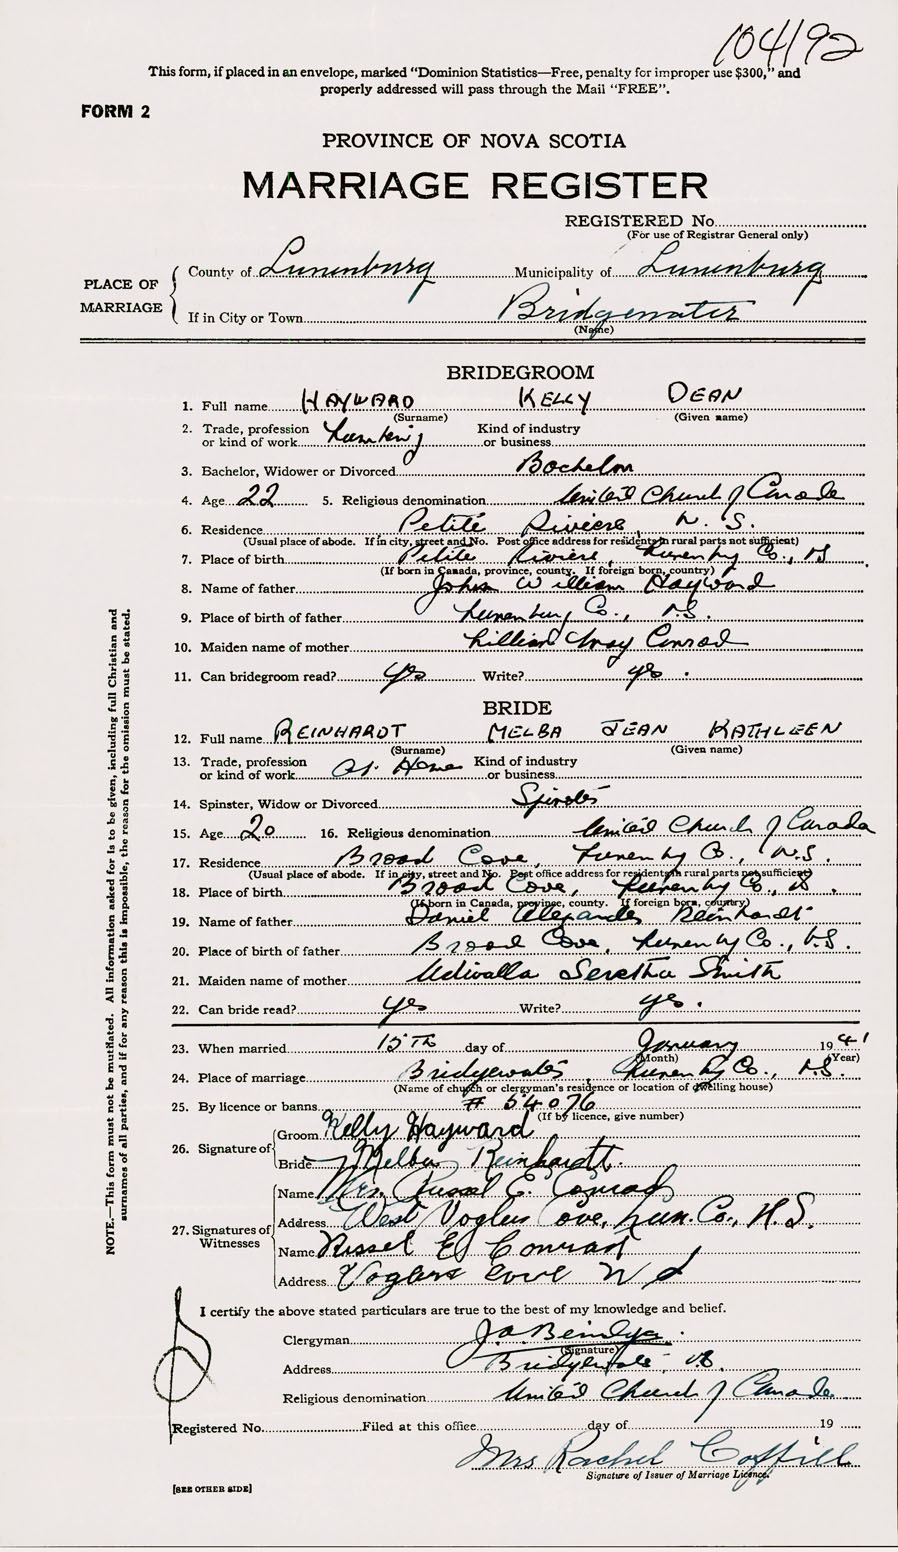 104192
This form, if placed in an envelope, marked "Dominion Statistics—Free, penalty for improper use $300," and
properly addressed will pass through the Mail "FREE".
FORM 2
PROVINCE OF NOVA SCOTIA
MARRIAGE REGISTER
REGISTERED No.
(For use of Registrar General only)
PLACE OF MARRIAGE
County of Lunenburg Municipality of Lunenburg
If in City or Town Bridgewater
(Name)
BRIDEGROOM
1. Full name HAYWARD KELLY DEAN
(Surname) (Given name)
2. Trade, profession or kind of work Kind of industry or business
3. Bachelor, Widower or Divorced Bachelor
4. Age 22 5. Religious denomination United Church of Canada
6. Residence Petite Riviere, N. S.
(Usual place of abode. If in city, street and No. Post office address for residents in rural parts not sufficient)
7. Place of birth Petite Riviere, Lunenburg Co., N.S.
(If born in Canada, province, county. If foreign born, country)
8. Name of father John William Hayward
9. Place of birth of father Lunenburg Co., N.S.
10. Maiden name of mother Lillian May Conrad
11. Can bridegroom read? yes Write? yes.
BRIDE
12. Full name REINHARDT MELBA JEAN KATHLEEN
(Surname) (Given name)
13. Trade, profession or kind of work At Home Kind of industry or business
14. Spinster, Widow or Divorced Spinster
15. Age 20 16. Religious denomination United Church of Canada
17. Residence Broad Cove, Lunenburg Co., N.S.
(Usual place of abode. If in city, street and No. Post office address for residents in rural parts not sufficient)
18. Place of birth Broad Cove, Lunenburg Co., N.S.
(If born in Canada, province, county. If foreign born, country)
19. Name of father Daniel Alexander Reinhardt
20. Place of birth of father Broad Cove, Lunenburg Co., N.S.
21. Maiden name of mother Seretha Smith
22. Can bride read? yes Write? yes.
23. When married 15th day of January 1941
(Month) (Year)
24. Place of marriage Bridgewater, Lunenburg Co., N.S.
(Name of church or clergyman's residence or location of dwelling house)
25. By licence or banns # 54076
(If by licence, give number)
26. Signature of
Groom Kelly Hayward
Bride Melba Reinhardt.
27. Signatures of Witnesses
Name Mrs. Russel E. Conrad
Address West Voglers Cove, Lun. Co., N.S.
Name Russel E Conrad
Address Voglers Cove N S
I certify the above stated particulars are true to the best of my knowledge and belief.
Clergyman
(Signature)
Address Bridgewater, N.S.
Religious denomination United Church of Canada
Registered No. Filed at this office day of 19
Mrs Rachel Coffill
Signature of Issuer of Marriage Licence.
[SEE OTHER SIDE]
NOTE.—This form must not be mutilated. All information asked for is to be given, including full Christian and
surnames of all parties, and if for any reason this is impossible, the reason for the omission must be stated.